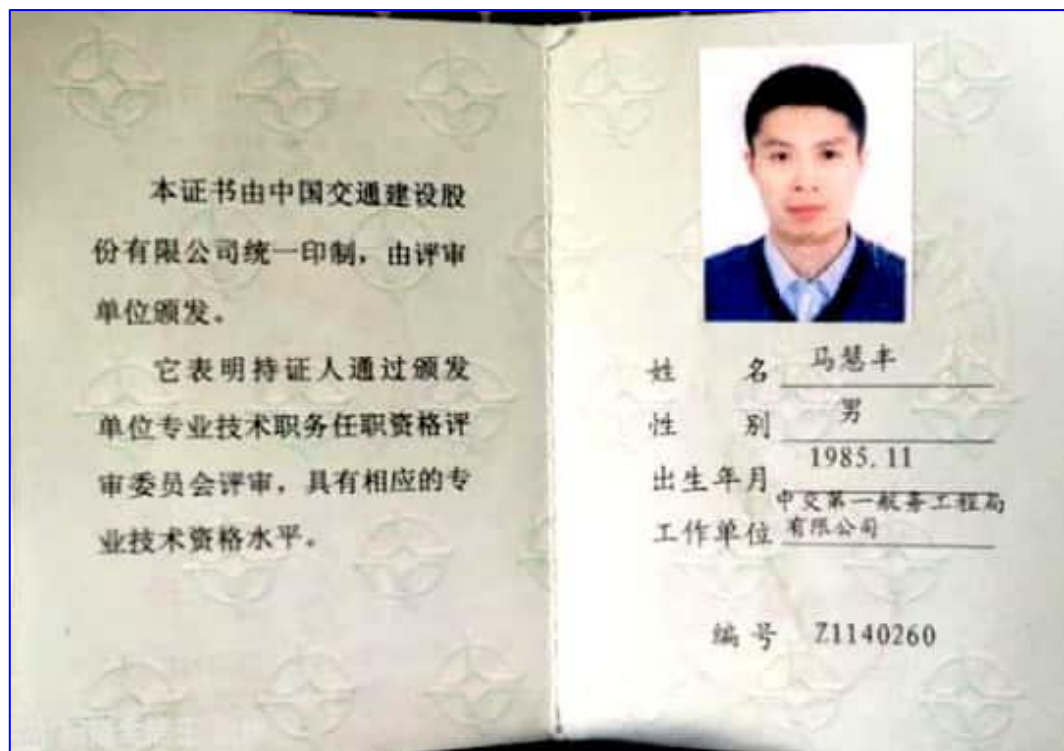 本证书由中国交通建设股
份有限公司统一印制，由评审
单位颁发。
它表明持证人通过颁发
单位专业技术职务任职资格评
审委员会评审，具有相应的专
业技术资格水平。
姓 名 马慧丰
性 别 男
出生年月 1985.11
工作单位 中交第一航务工程局
有限公司
编号 Z1140260